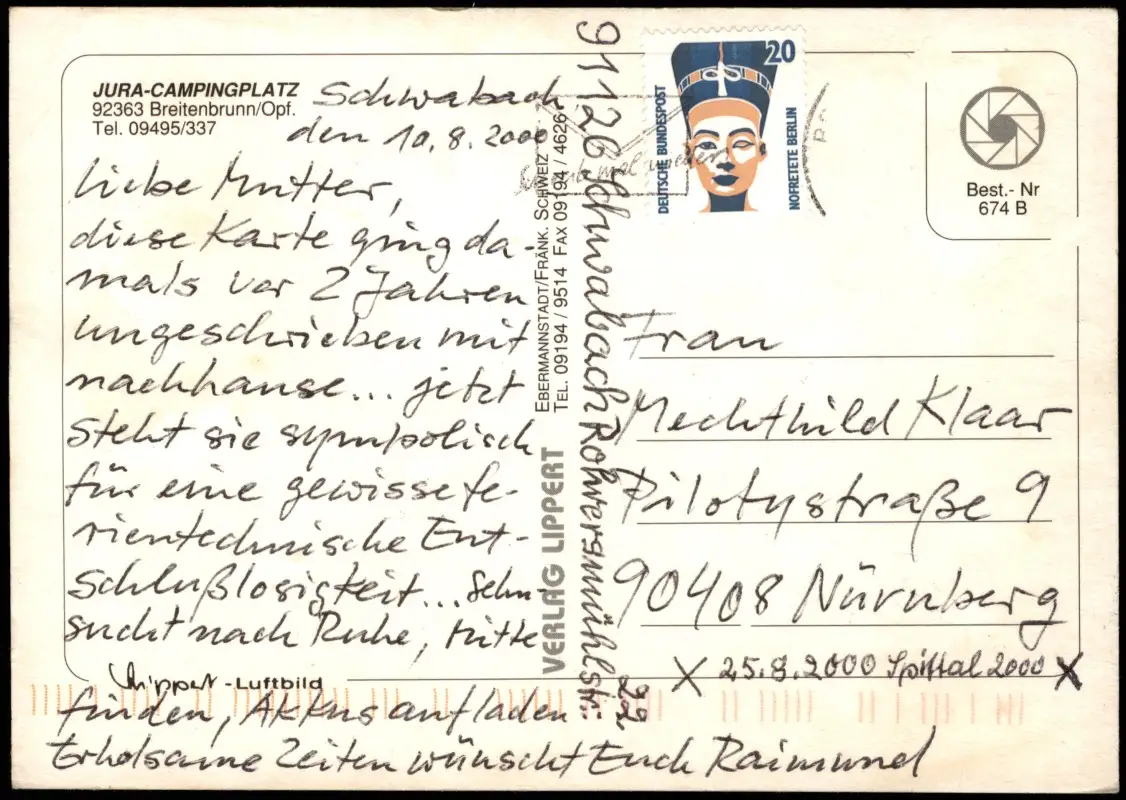 JURA-CAMPINGPLATZ
92363 Breitenbrunn/Opf.
Tel. 09495/337
Schwabach
den 10.8.2000
Liebe Mutter,
diese Karte ging da-
mals vor 2 Jahren
ungeschrieben mit
nachhause... jetzt
steht sie symbolisch
für eine gewisse fe-
rientechnische Ent-
schlußlosigkeit... Sehn-
sucht nach Ruhe, Mitte
finden, Akkus aufladen
Erholsame Zeiten wünscht Euch Raimund
Lippert-Luftbild
VERLAG LIPPERT
EBERMANNSTADT/FRÄNK. SCHWEIZ
TEL. 09194 / 9514 FAX 09194 / 4626
91126 Schwabach Rohrersmühlstr.: 22
20
DEUTSCHE BUNDESPOST
NOFRETETE BERLIN
mal wieder
Best.- Nr
674 B
Frau
Mechthild Klaar
Pilotystraße 9
90408 Nürnberg
X 25.8.2000 Spittal 2000 X